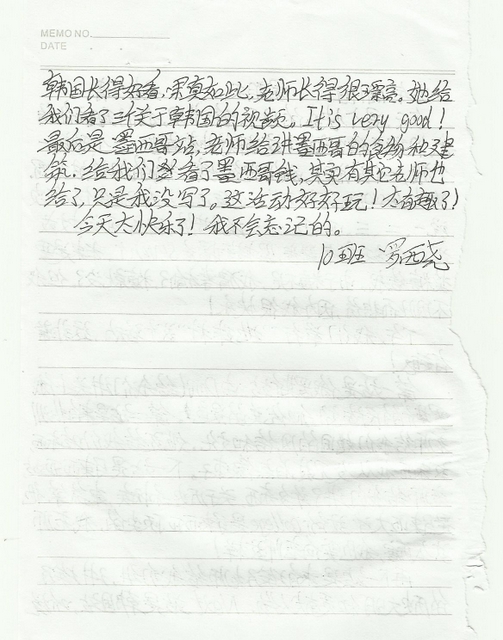 MEMO NO.
DATE
韩国长得好看,果真如此,老师长得很漂亮。她给
我们看了三个关于韩国的视频。It is very good!
最后是墨西哥站,老师给讲墨西哥的食物和建
筑,给我们看了墨西哥钱,其实有其它老师也
给了,只是我没写了。这活动好好玩!太有趣了!
今天太快乐了!我不会忘记的。
10班 罗西尧